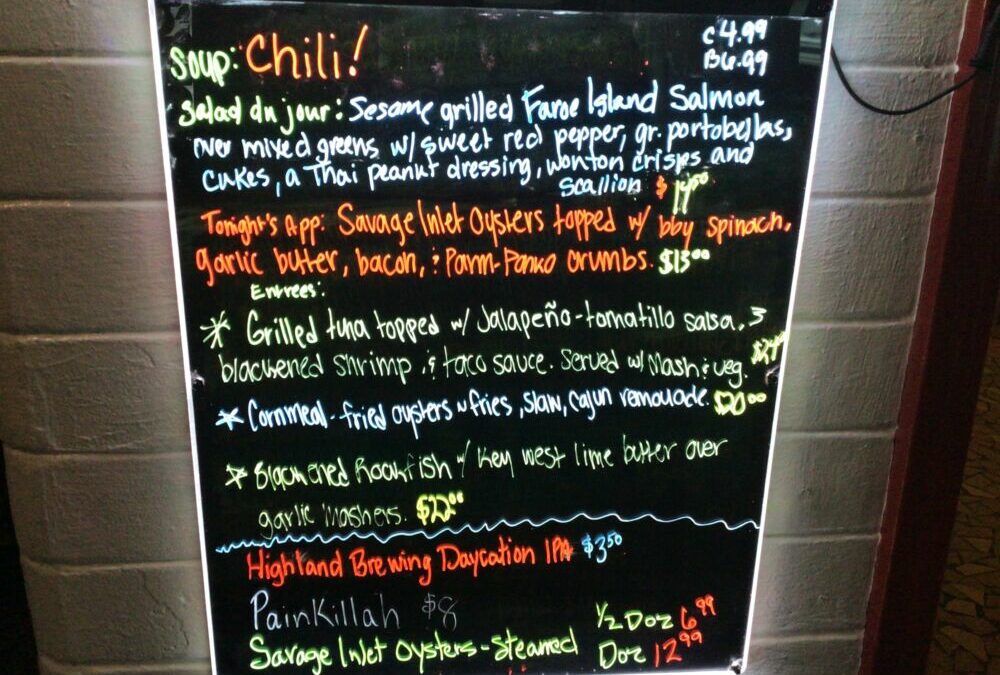 Soup: Chili! C 4.99
B 6.99
Salad du jour: Sesame grilled Faroe Island Salmon
over mixed greens w/ sweet red pepper, gr. portobellas,
cukes, a Thai peanut dressing, wonton crisps and
scallion $
Tonight's App: Savage Inlet Oysters topped w/ bby spinach,
garlic butter, bacon, & Parm-Panko crumbs. $13⁰⁰
Entrees:
* Grilled tuna topped w/ Jalapeño-tomatillo salsa, 3
blackened shrimp & taco sauce. Served w/ Mash & veg.
* Cornmeal-fried oysters w fries, slaw, cajun remoulade. $20⁰⁰
* Blackened Rockfish w/ Key west lime butter over
garlic mashers. $22⁰⁰
Highland Brewing Daycation IPA $3⁵⁰
PainKillah $8
Savage Inlet Oysters-Steamed 1/2 Doz 6⁹⁹
Doz 12⁹⁹